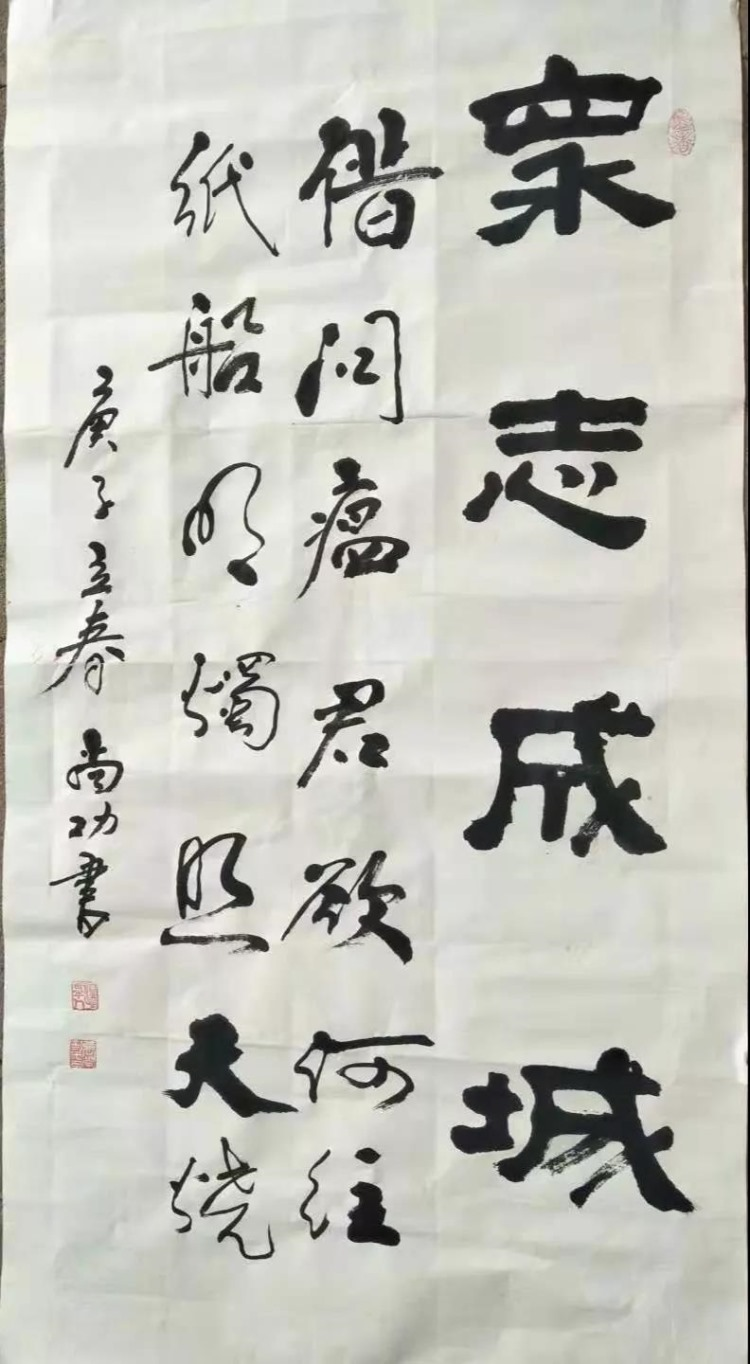 眾志成城
借问瘟君欲何往
纸船明烛照天烧
庚子立春尚功书